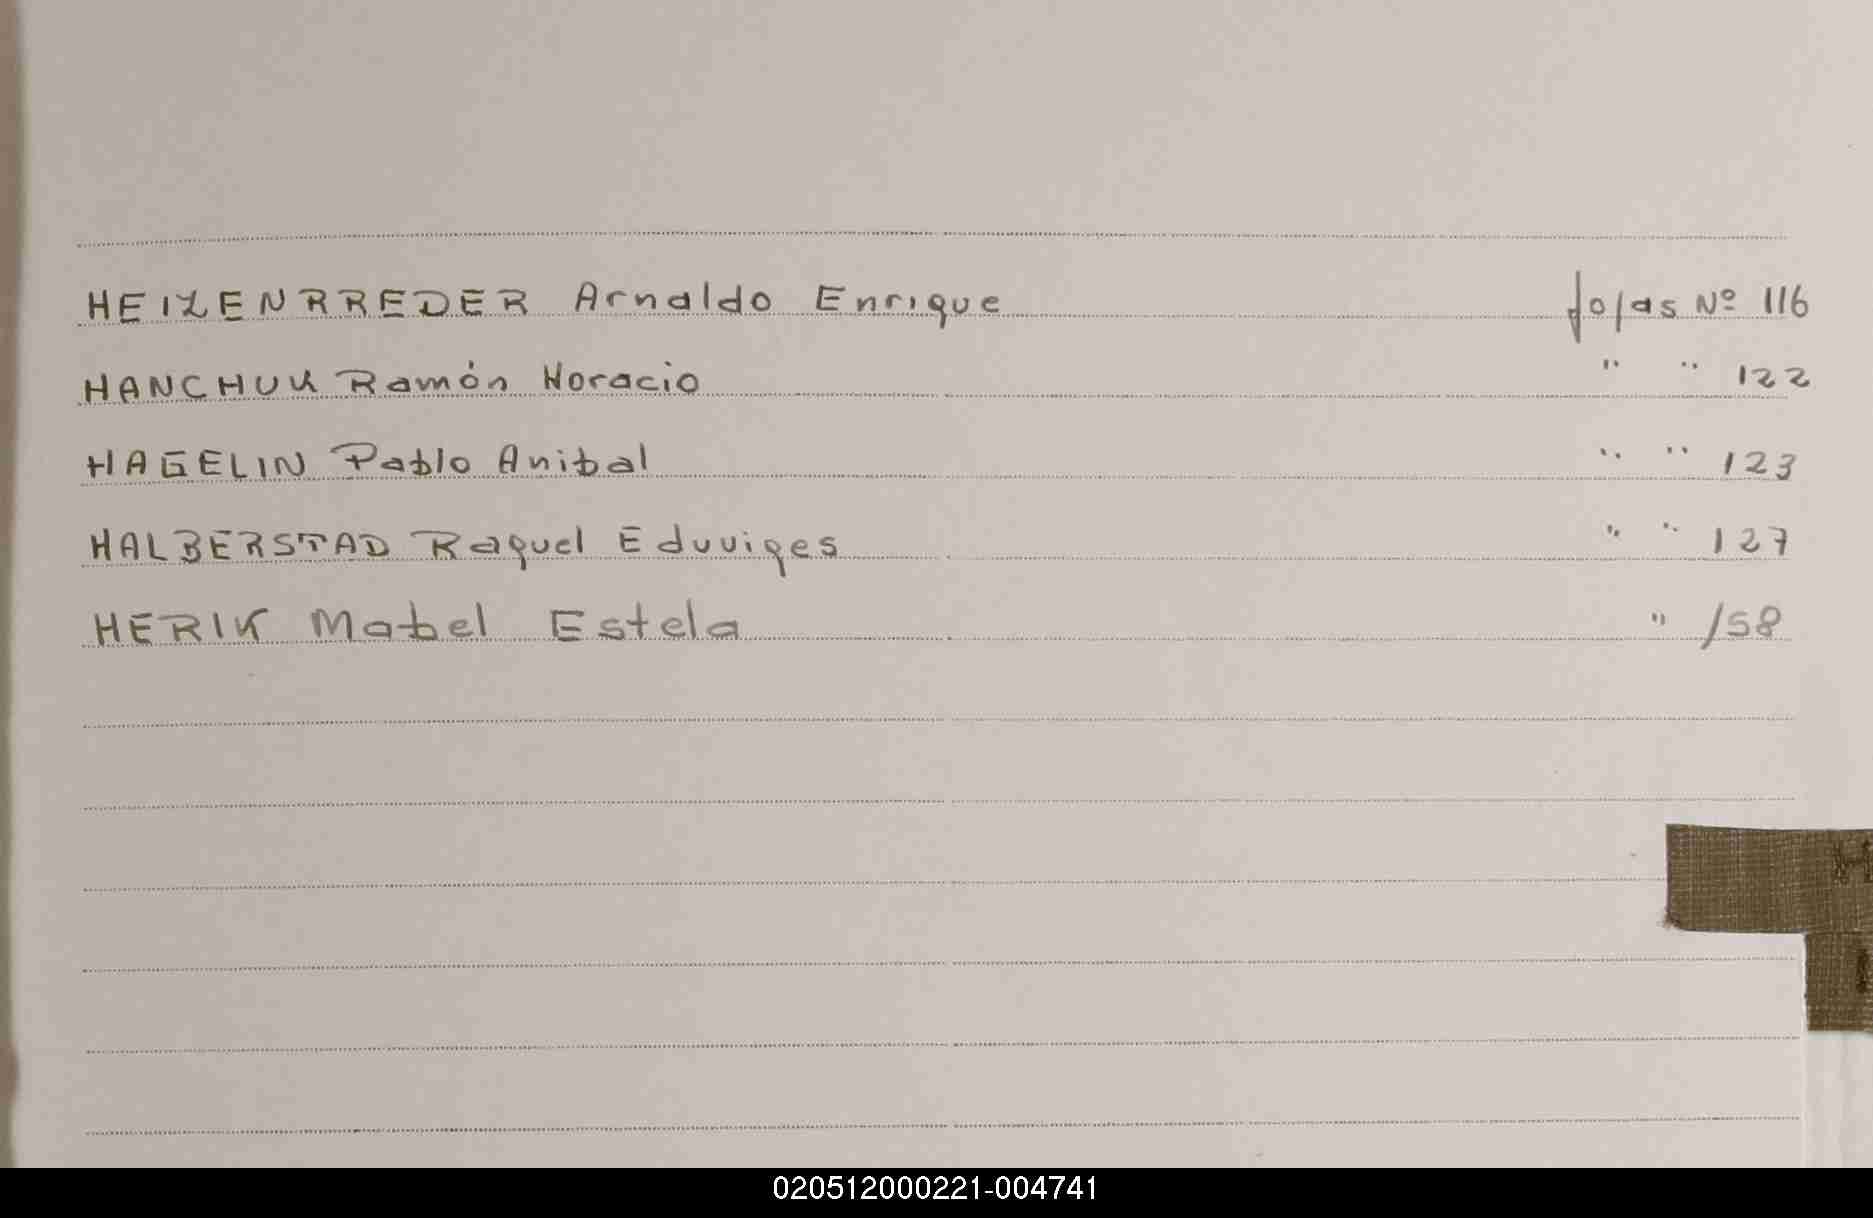 HEIZENRREDER Arnaldo Enrique fojas Nº 116
HANCHUK Ramón Horacio " " 122
HAGELIN Pablo Anibal " " 123
HALBERSTAD Raquel Eduviges " " 127
HERIK Mabel Estela " 158
H
020512000221-004741